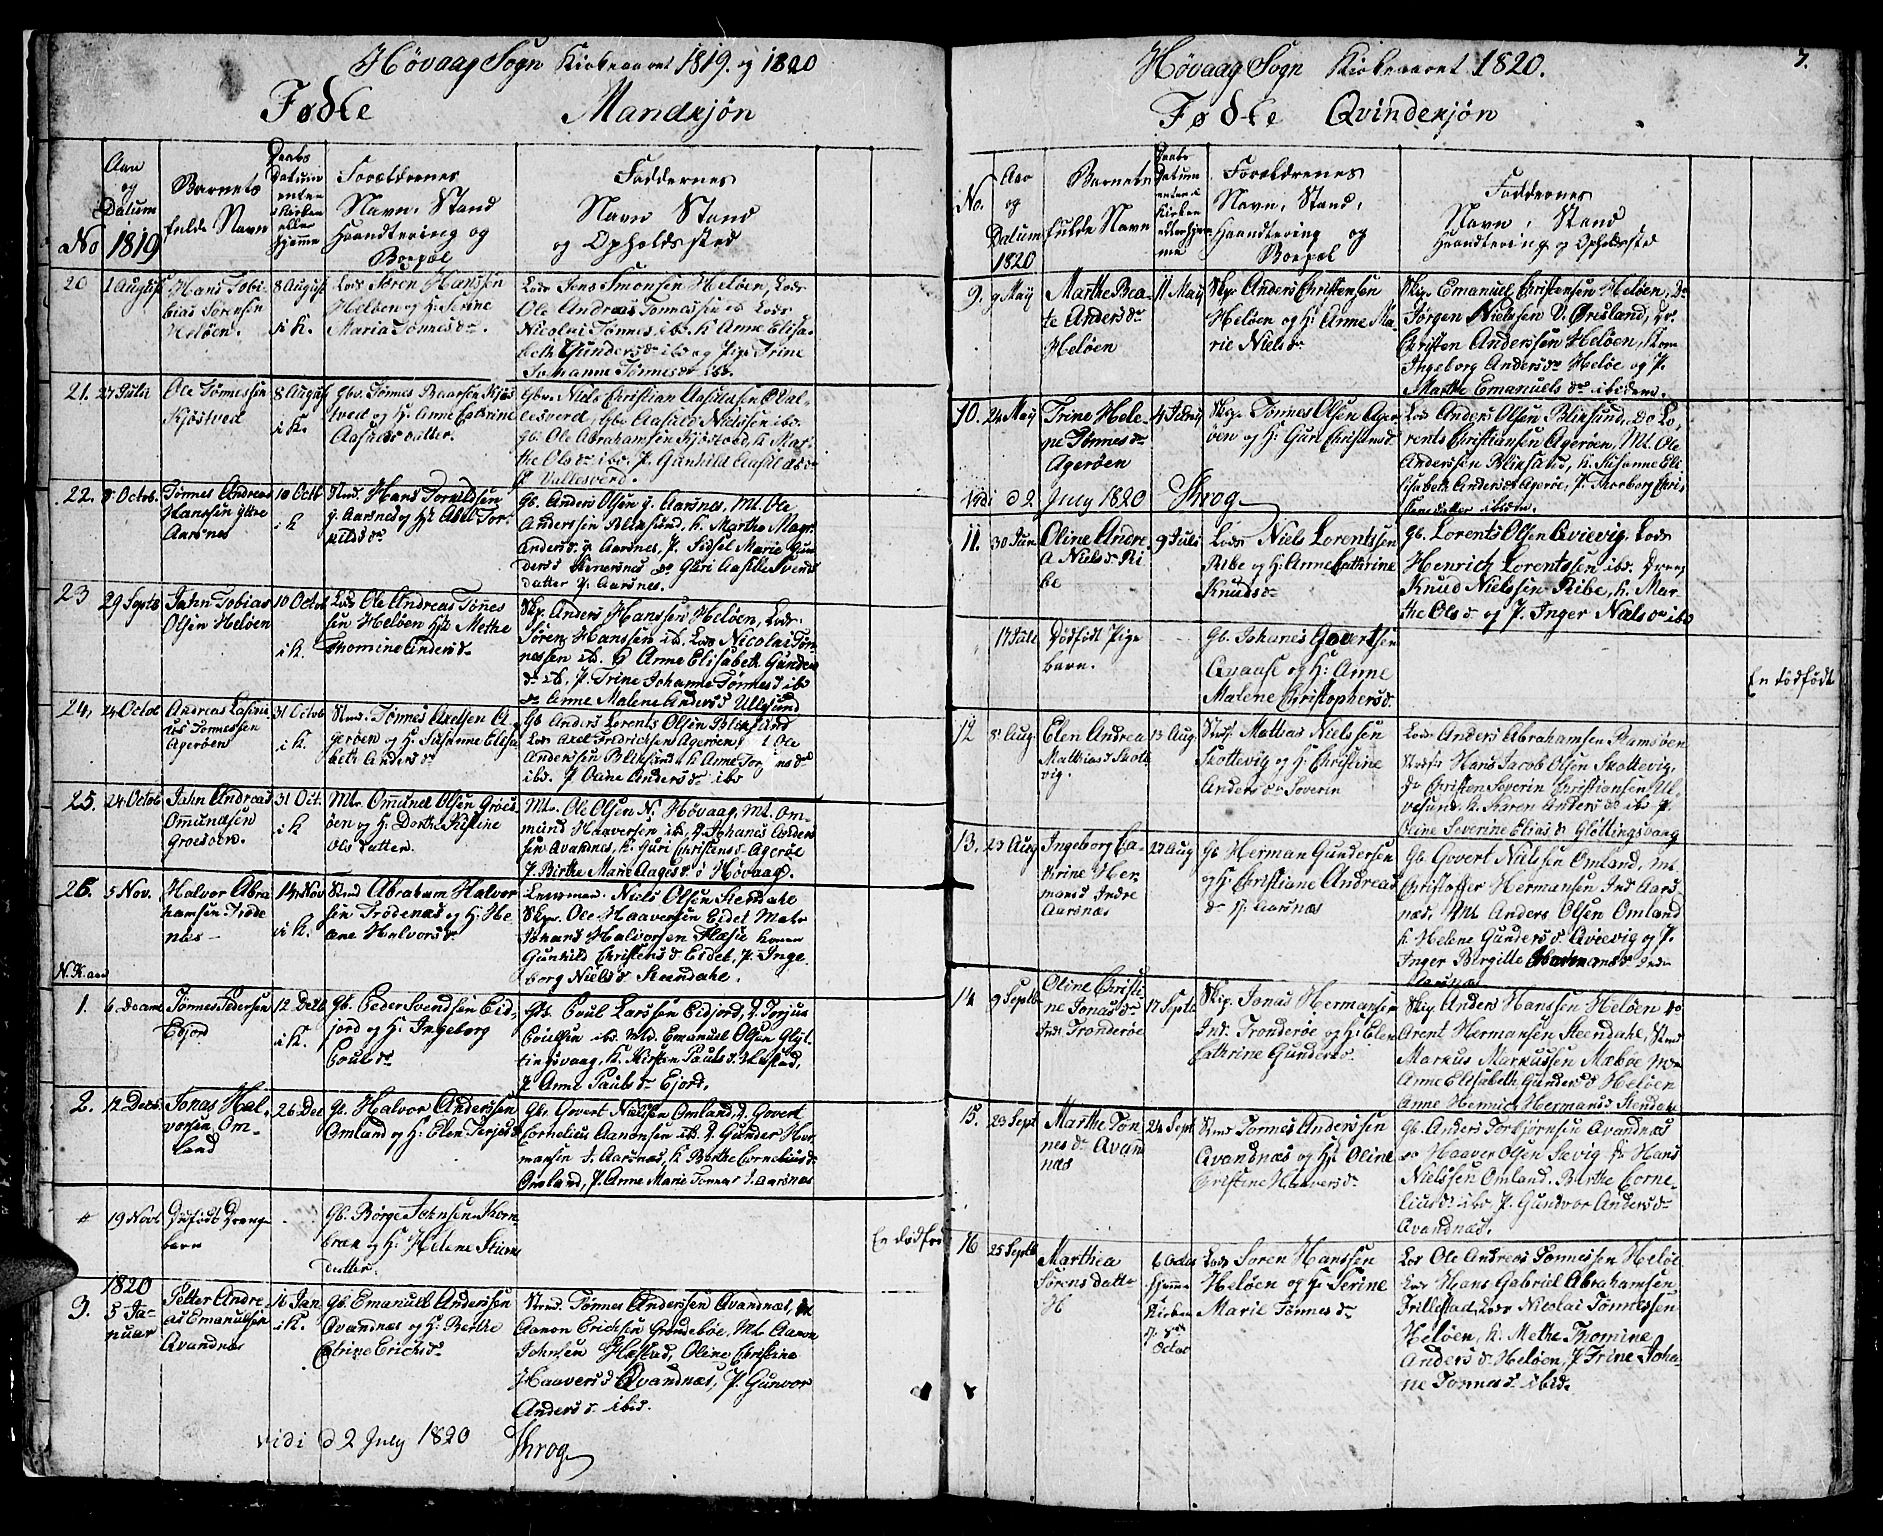 Høvaag Sogn Kirkeaaret 1819. og 1820
Fødte Mandkjøn
No
Aar
og
Datum
1819
Barnets
fulde Navn
Daabs
Datum
enten
i Kirken
eller
hjemme
Forældrenes
Navn, Stand
Haandtering og
Bopæl
Faddernes
Navn Stand
og Opholdssted
20
1 August
Hans Tobi-
as Sørensen
Heløen.
8 August
i K.
Lods Søren Hanssen
Heløen og H: Serine
Maria Tønnesdr.
Lods Jens Simonsen Heløen, Lods
Ole Andreas Tønnessen ib Lods
Nicolai Tønnes. ibs. K Anne Elisa-
beth Gundersdr ibs og Pige Trine
Johanne Tønnesdr ibs.
21.
27 Juli
Ole Tønnessen
Kjøstved
8 August
i K.
Gbr. Tønnes Baarsen Kjøs
tved og H. Anne Catrine
Aasuldsdatter.
Gbr. Niels Christian Aasuldsen Val-
lesverd, Gbr Aasuld Nielsen ibs.
gb. Ole Abrahamsen Kjøstved, K. Mar-
the Olsdr ibs. P. Gunhild Aasuldsdr
Vallesverd.
22.
8 Octob.
Tønnes Andreas
Hanssen yttre
Aarsnes
10 Octb
i k
Strnd. Hans Torkildsen
y. Aarsnes og H: Abel Tor-
kildsdr
Gb. Anders Olsen y. Aarsnes, Mt. Ole
Anderssen Bliksund, K. Marthe Magr.
Andersdr. y Aarsnes, P. Sidsel Marie Gun
dersd Stenersnes do Guri Aasilde Svends
datter y. Aarsnes.
23
29 Septb
Jahn Tobias
Olsen Heløen
10 Octob
i K.
Lods Ole Andreas Tønes
sen Heløen H: Methe
Thomine Andersdr
Skp. Anders Hanssen Heløen, Lods
Søren Hanssen ib. Lods Nicolai Tøn
nessen ib. K Anne Elisabeth Gunders
dr ib. P. Trine Johanne Tønnesd ibs
do Anne Malene Andersd Ulløsund
24,
24 Octob
Andreas
Tønnessen
Agerøen
31 Octob
i K.
Strnd. Tønnes Axelsen A
gerøen og H: Susanne Elisa
beth Andersdr
Gb Anders Lorents Olsen Bliksund
Lods Axel Fredricksen Agerøen, Ole
Anderssen Bliksund, K Anne
ibs. P Oline Andersdr ibs
25.
24 Octob
Jahn Andreas
Ommundsen
Groesøen.
31 Oct.
i k
Mt. Ommund Olsen Groes
øen og H: Dorthe Kistine
Olsdatter.
Mt. Ole Olsen N. Høvaag, Mt. Om-
mund Haaversen ibs, Johanes Anders
sen Avandnes, K. Guri Christensdr Agerøe
P. Birthe Marie Aagesdr. ø Høvaag.
26.
5 Nov.
Halvor Abra
hamsen Trøde
nes
14 Nov
i K.
Strnd Abraham Halvor
sen Trødenæs og H: He
lene Halvorsdr
Lensman. Niels Olsen Steendahl
Skpr. Ole Haaversen Eidet Matr
Johans Halvorsen Flæsie konen
Gunhild Christensdr Eidet, P. Inge
borg Nielsd Steendahl.
N. K. aar
1.
6 Decemb
Tønnes Pedersen
Eidjord
12 Decb
i K.
Gb. Peder Svendsen Eid-
jord og H: Ingeborg
Poulsdr
Gb. Poul Larssen Eidjord, D. Torjus
Poulsen ibs. Mt. Emanuel Olsen Gløt-
tingsvaag. K. Kirsten Paulsd. Hæstad,
P. Anne Paulsdr Ejord.
2.
12 Decb
Jonas Hal-
vorsen Om-
land
26 Dec
Gb. Halvor Anderssen
Omland og H: Elen Terjesdr
Gb. Govert Nielsen Omland, D. Govert
Cornelius Aanonsen ib. D. Gunder Her-
mansen I. Aarsnæs, K Berthe Corneliusdr
Omland, P. Anne Marie Tønnesd I. Aarsnæs
19 Novb
Dødfødt Drenge
barn
Gb. Børge Johnsen Korn-
bræk og H: Helene Steens
datter.
En dødfød
1820
3.
5 Ja-
nuar
Petter Andre
as Emanuelsen
Qvandnæs
16 Jan
i K.
Gb. Emanuel Anderssen
Qvandnæs og H: Berthe
Catrine Ericksdr
Strnd. Tønnes Anderssen Avandnæs,
Aanon Ericksen Grøndebøe, Mt. Aanon
Johnsen Hæstad, Oline Christine
Haaversd Qvandnæs, P. Gunvor
Andersdr ibid.
vidi d 2 July 1820 Throg
Høvaag Sogn Kirkeaaret 1820.
7.
Fødte Qvindekjøn
No.
Aar
og
Datum
1820
Barnets
fulde Navn
Daabs
Datum
enten i
Kirken
eller hjem
me
Forældrenes
Navn, Stand,
Haandtering og
Bopæl
Faddernes
Navn, Stand
Haandtering og Opholdssted
9.
9 Maij
Marthe Bea-
te Andersdr
Heløen
11 Maij
Skp. Anders Christensen
Heløen og H: Anne Ma-
rie Nielsdr
Skip. Emanuel Christensen Heløen, Do
Jørgen Nielsen V. Øresland, Do.
Christen Anderssen Heløen, Kone
Ingeborg Andersdr Heløe og P.
Marthe Emanuelsdr ibidem.
10.
24 Maij
Trine Hele-
ne Tønnesdr
Agerøen
4 Juni
Skp. Tønnes Olsen Ager-
øen og H: Guri Christensdr
Lods Anders Olsen Bliksund, Do Lo-
rents Christiansen Agerøen, Mt. Ole
Anderssen Bliksund, K. Susanne Eli-
sabeth Andersdr Agerøe, P. Thorborg Chris
tensdatter ibidem.
Vidi d 2 July 1820 Throg
11.
30 Juni
Oline Andre
a Nielsdr Ri
be
9 Juli
Lods Niels Lorentssen
Ribe og H: Anne Cathrine
Knudsdr
Gb. Lorents Olsen Qvievig, Lods
Henrich Lorentssen ibs. Dreng
Knud Nielssen Ribe, K. Mar-
the Olsdr og P. Inger Nielsdr ibs
17 Juli
Dødfødt Pige
barn.
Gb. Johanes Govertsen
Qvaase og H: Anne
Malene Christophersdr.
En dødfødt
12
8 Aug
Elen Andrea
Mathiasd Skotte
vig.
13 Aug
Strf. Mattias Nielssen
Skottevig og H: Christine
Andersdr Severin
Lods Anders Abrahamsen Ramsøen
Strf. Hans Jacob Olsen Skottevig.
Do Christen Severin Christiansen Ul-
vesund. K. Karen Andersdr ibs P.
Oline Severine Eliasdr Gløttingsvaag
13.
23 Aug
Ingeborg Ca-
thrine Her-
mansd Indre
Aarsnæs
27 Aug
Gb. Herman Gundersen
og H: Christiane Andreas
dr Aarsnæs
Gb. Govert Nielssen Omland, Mt
Christoffer Hermansen Ind Aars-
næs. Mt Anders Olsen Omland
K Helene Gundersdr Qvievig og P.
Inger Birgitte Hermansdr Indr
Aarsnæs
14
9 Septb
Oline Christi
ne Jonasdr
Ind. Trønderøe
17 Septb
Skip. Jonas Hermansen
Ind. Trønderøe og H: Elen
Cathrine Gundersdr.
Skip Anders Hanssen Heløen Do
Arent Hermansen Steendahl, Strnd
Markus Markussen Mæbøe
Anne Elisabeth Gundersd Heløen
Anne Henrica Hermansd Stendahl
15.
23 Sept
Marthe Tøn
nesdr Avand
næs
24 Sept
Strnd Tønnes Anderssen
Qvandnæs og H: Oline
Christine Haaversdr
Gb. Anders Torbjørnsen Avandnæs
Do Haaver Olsen Sævig Do Hans
Nielssen Omland. Birthe Corne-
liusdr ibs P. Gundvor Andersdr
Avandnæs.
16
25 Septb
Marthea
Sørensdatte
H
6 Octob
hjemme
i
Kirken
d. 8de
Octob
Lods Søren Hanssen
Heløen og H: Serine
Marie Tønnesdr
Lods Ole Andreas Tønnessen Heløe
Lods Hans Gabriel Abrahamsen
Trillestad, Lods Nicolai Tønnessen
Heløen, K. Methe Thomine
Andersdr Heløen, P. Trine Joha-
ne Tønnesd. ibid.